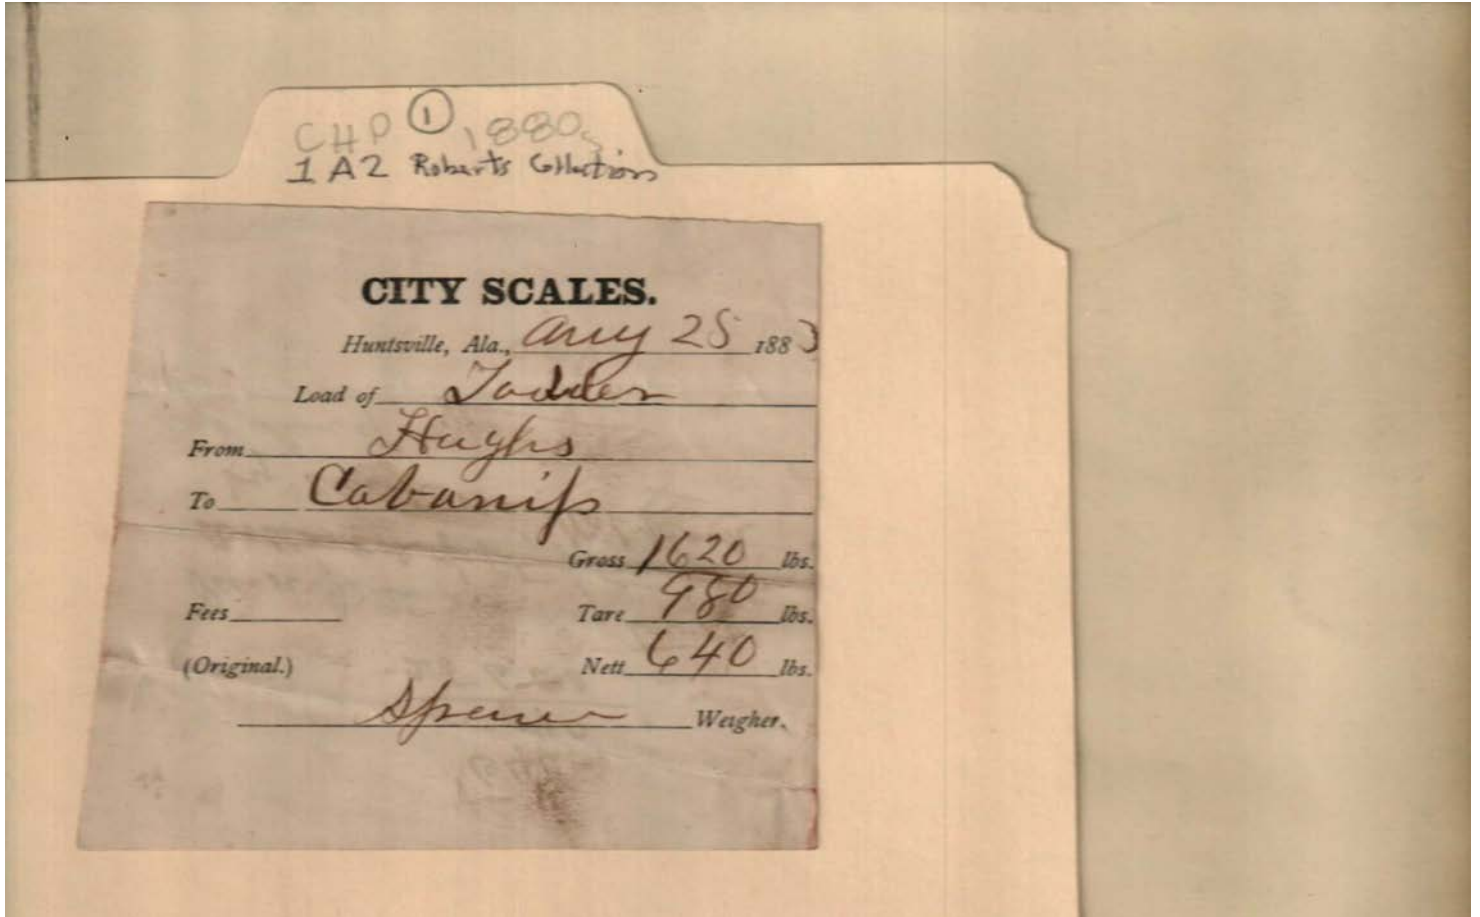 CHP ① 1880s
1A2 Roberts Collection
CITY SCALES.
Huntsville, Ala., Aug 25 1883
Load of Fodder
From Hughs
To Cabaniss
Gross 1620 lbs.
Fees Tare 980 lbs.
(Original.) Nett 640 lbs.
Spencer Weigher.